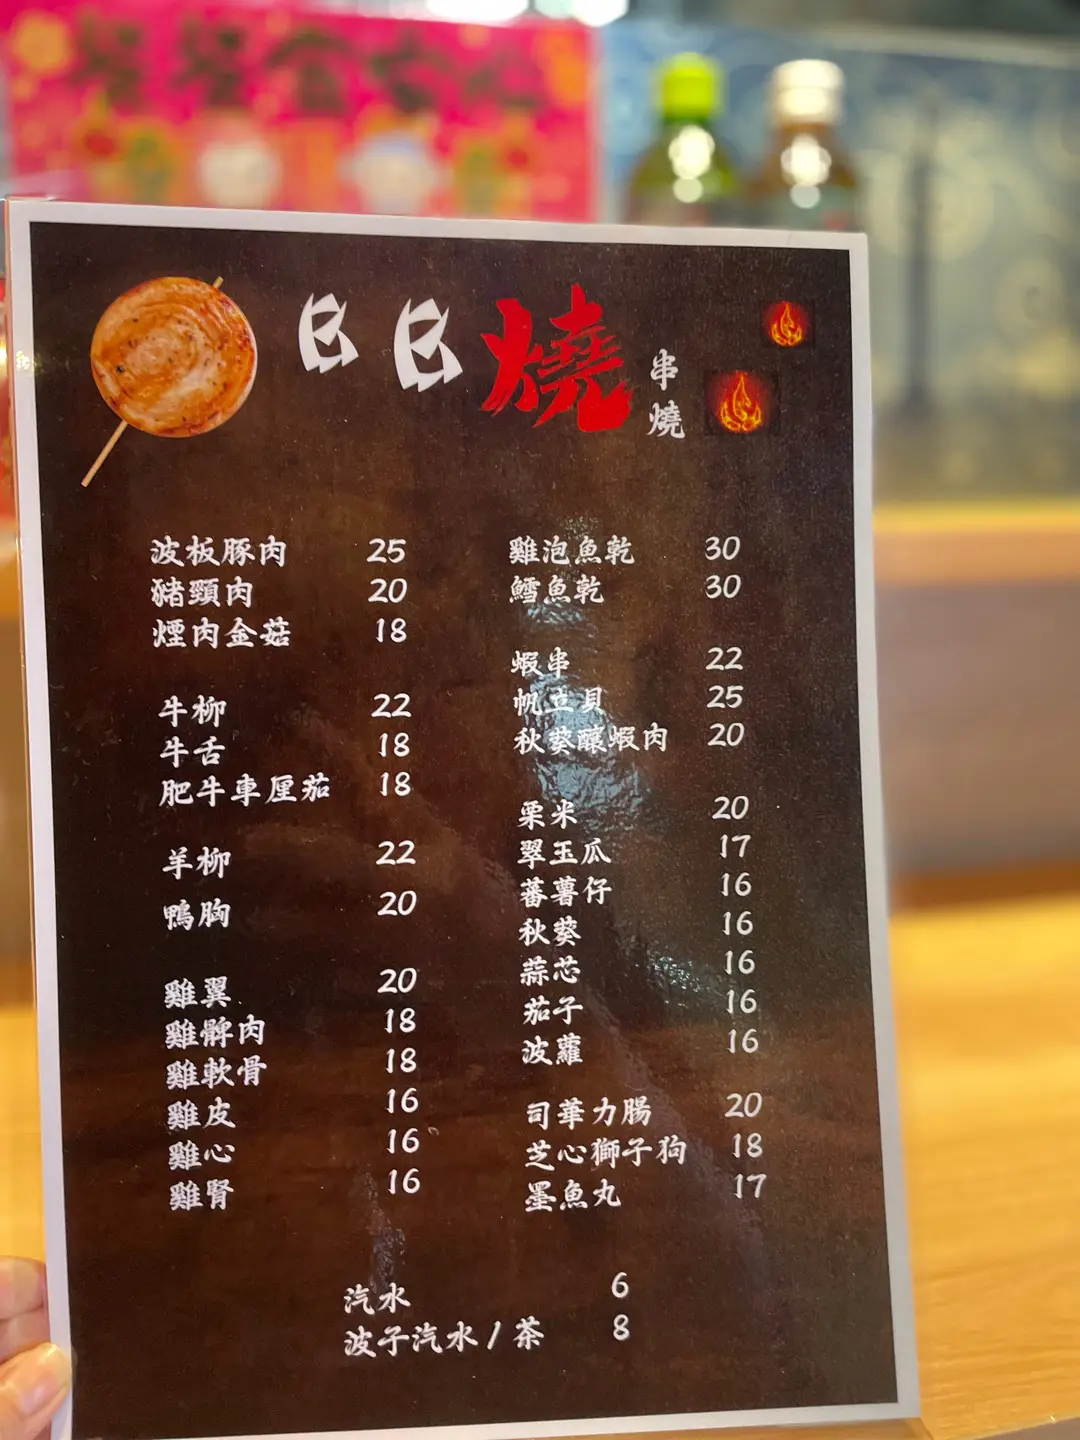 BB燒
串燒
波板豚肉 25
豬頸肉 20
煙肉金菇 18
牛柳 22
牛舌 18
肥牛車厘茄 18
羊柳 22
鴨胸 20
雞翼 20
雞髀肉 18
雞軟骨 18
雞皮 16
雞心 16
雞腎 16
雞泡魚乾 30
鱈魚乾 30
蝦串 22
帆立貝 25
秋葵釀蝦肉 20
栗米 20
翠玉瓜 17
蕃薯仔 16
秋葵 16
蒜芯 16
茄子 16
波蘿 16
司華力腸 20
芝心獅子狗 18
墨魚丸 17
汽水 6
波子汽水/茶 8